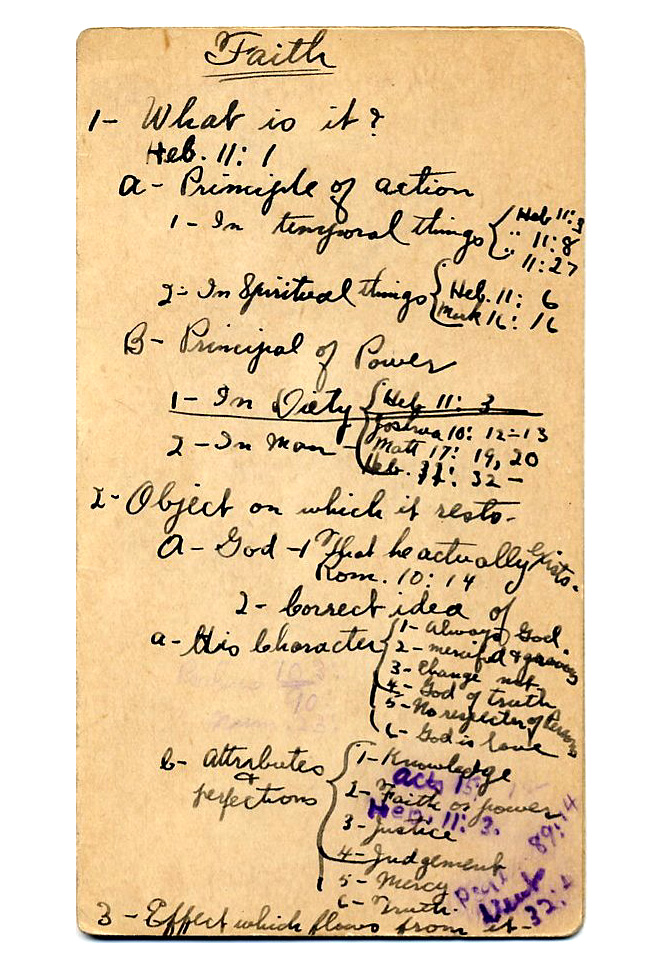 Faith
1- What is it?
Heb. 11: 1
a- Principle of action
1- In temporal things { Heb 11: 3
" 11: 8
11: 27
2- In Spiritual things { Heb. 11: 6
Mark 16: 16
B- Principal of Power
1- In Diety { Heb 11: 3
2- In Man - { Joshua 10: 12-13
Matt 17: 19, 20
Heb. 11: 32-
2- Object on which it rests-
a- God -1 That he actually exists-
Rom. 10: 14
2- Correct idea of
a- His Character { 1- Always God.
2- merciful & gracious
3- Change not
4- God of truth
5- No respecter of Persons
6- God is love
b- Attributes & perfections { 1- Knowledge
Acts 15:
2- Faith or power
Heb. 11: 3.
3- Justice
4- Judgement
89: 14
5- Mercy
6- Truth.
32: 4
3- Effect which flows from it-